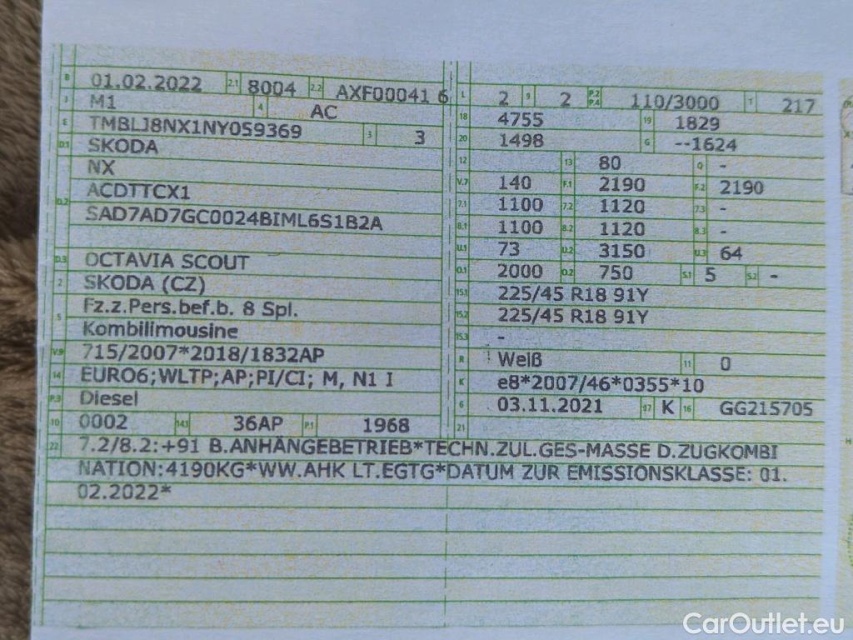 B 01.02.2022 2.1 8004 2.2 AXF00041 6
J M1 4 AC
E TMBLJ8NX1NY059369 3 3
D.1 SKODA
NX
D.2 ACDTTCX1
SAD7AD7GC0024BIML6S1B2A
D.3 OCTAVIA SCOUT
2 SKODA (CZ)
5 Fz.z.Pers.bef.b. 8 Spl.
Kombilimousine
V.9 715/2007*2018/1832AP
14 EURO6;WLTP;AP;PI/CI; M, N1 I
P.3 Diesel
10 0002 14.1 36AP P.1 1968
L 2 9 2 P.2 P.4 110/3000 T 217
18 4755 19 1829
20 1498 G --1624
12 13 80 Q -
V.7 140 F.1 2190 F.2 2190
7.1 1100 7.2 1120 7.3 -
8.1 1100 8.2 1120 8.3 -
U.1 73 U.2 3150 U.3 64
O.1 2000 O.2 750 S.1 5 S.2 -
15.1 225/45 R18 91Y
15.2 225/45 R18 91Y
15.3 -
R Weiß 11 0
K e8*2007/46*0355*10
6 03.11.2021 17 K 16 GG215705
21
22 7.2/8.2:+91 B.ANHÄNGEBETRIEB*TECHN.ZUL.GES-MASSE D.ZUGKOMBI
NATION:4190KG*WW.AHK LT.EGTG*DATUM ZUR EMISSIONSKLASSE: 01.
02.2022*
CarOutlet.eu